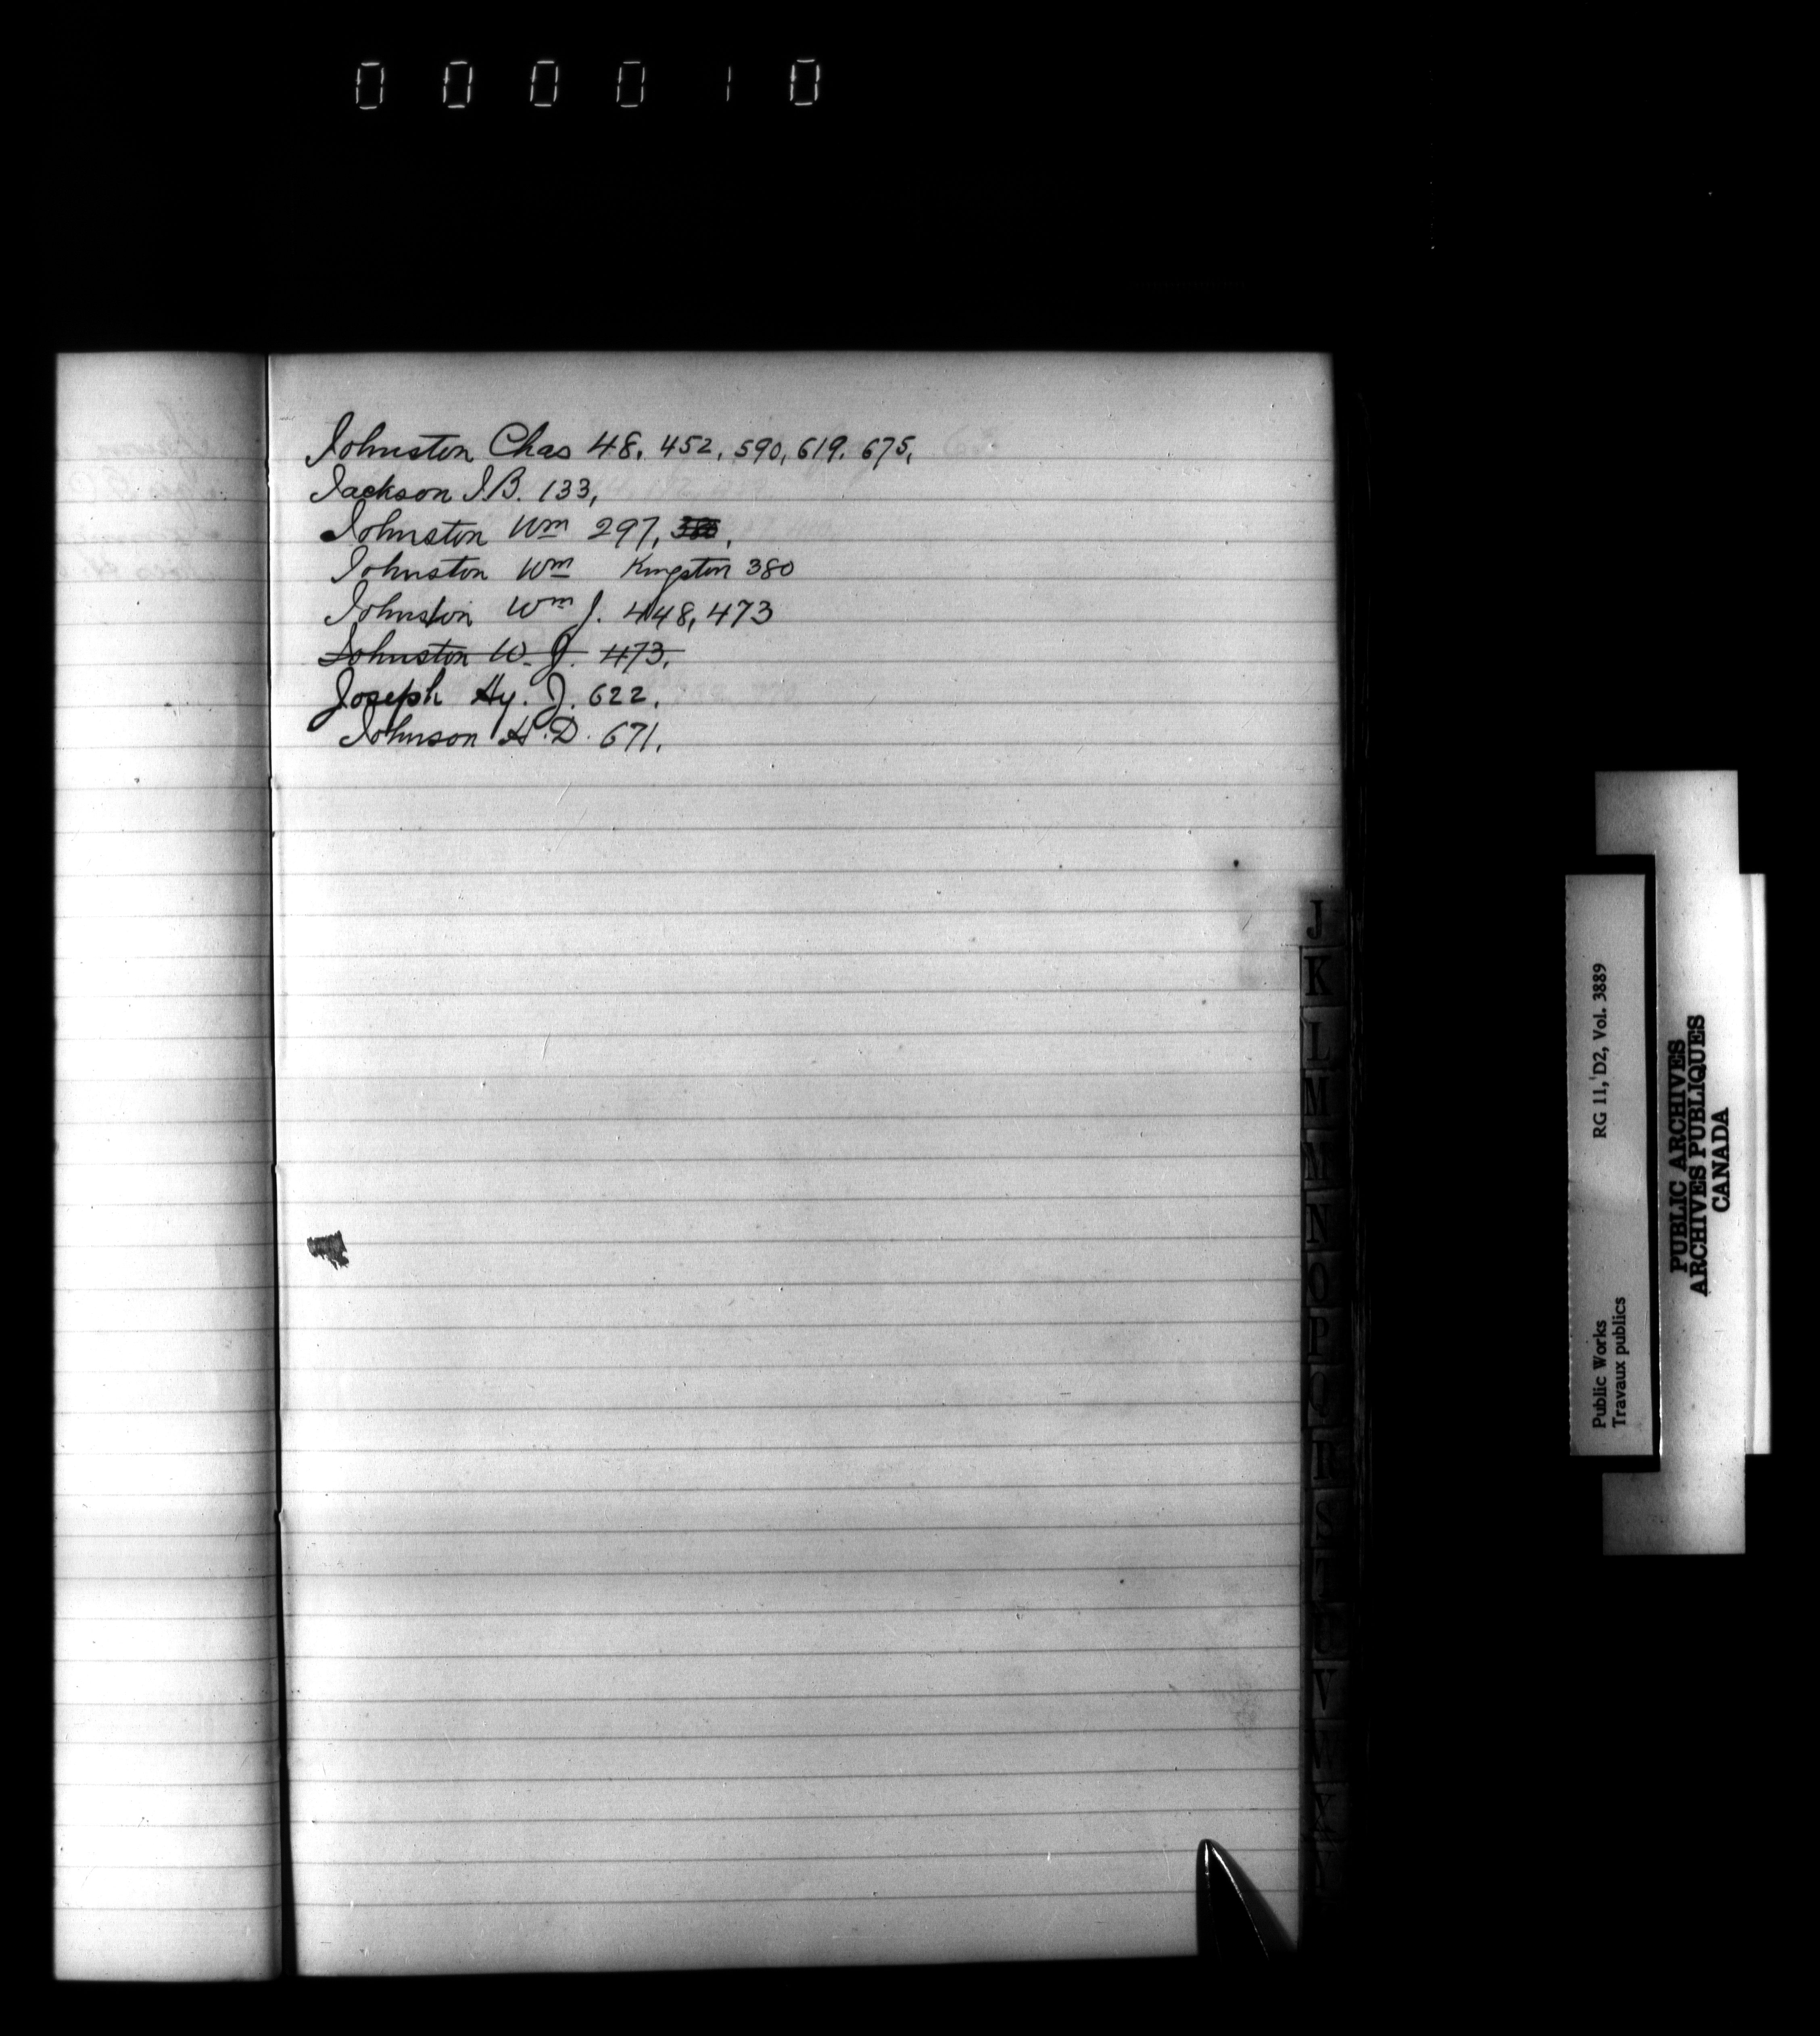 000010
Johnston Chas 48, 452, 590, 619, 675,
Jackson J.B. 133,
Johnston Wm 297, 380,
Johnston Wm Kingston 380
Johnston Wm J. 448, 473
Johnston W. J. 473,
Joseph Hy. J. 622,
Johnson H.D. 671,
J
K
L
M
N
O
P
Q
R
S
T
U
V
W
RG 11, D2, Vol. 3889
Public Works
Travaux publics
PUBLIC ARCHIVES
ARCHIVES PUBLIQUES
CANADA